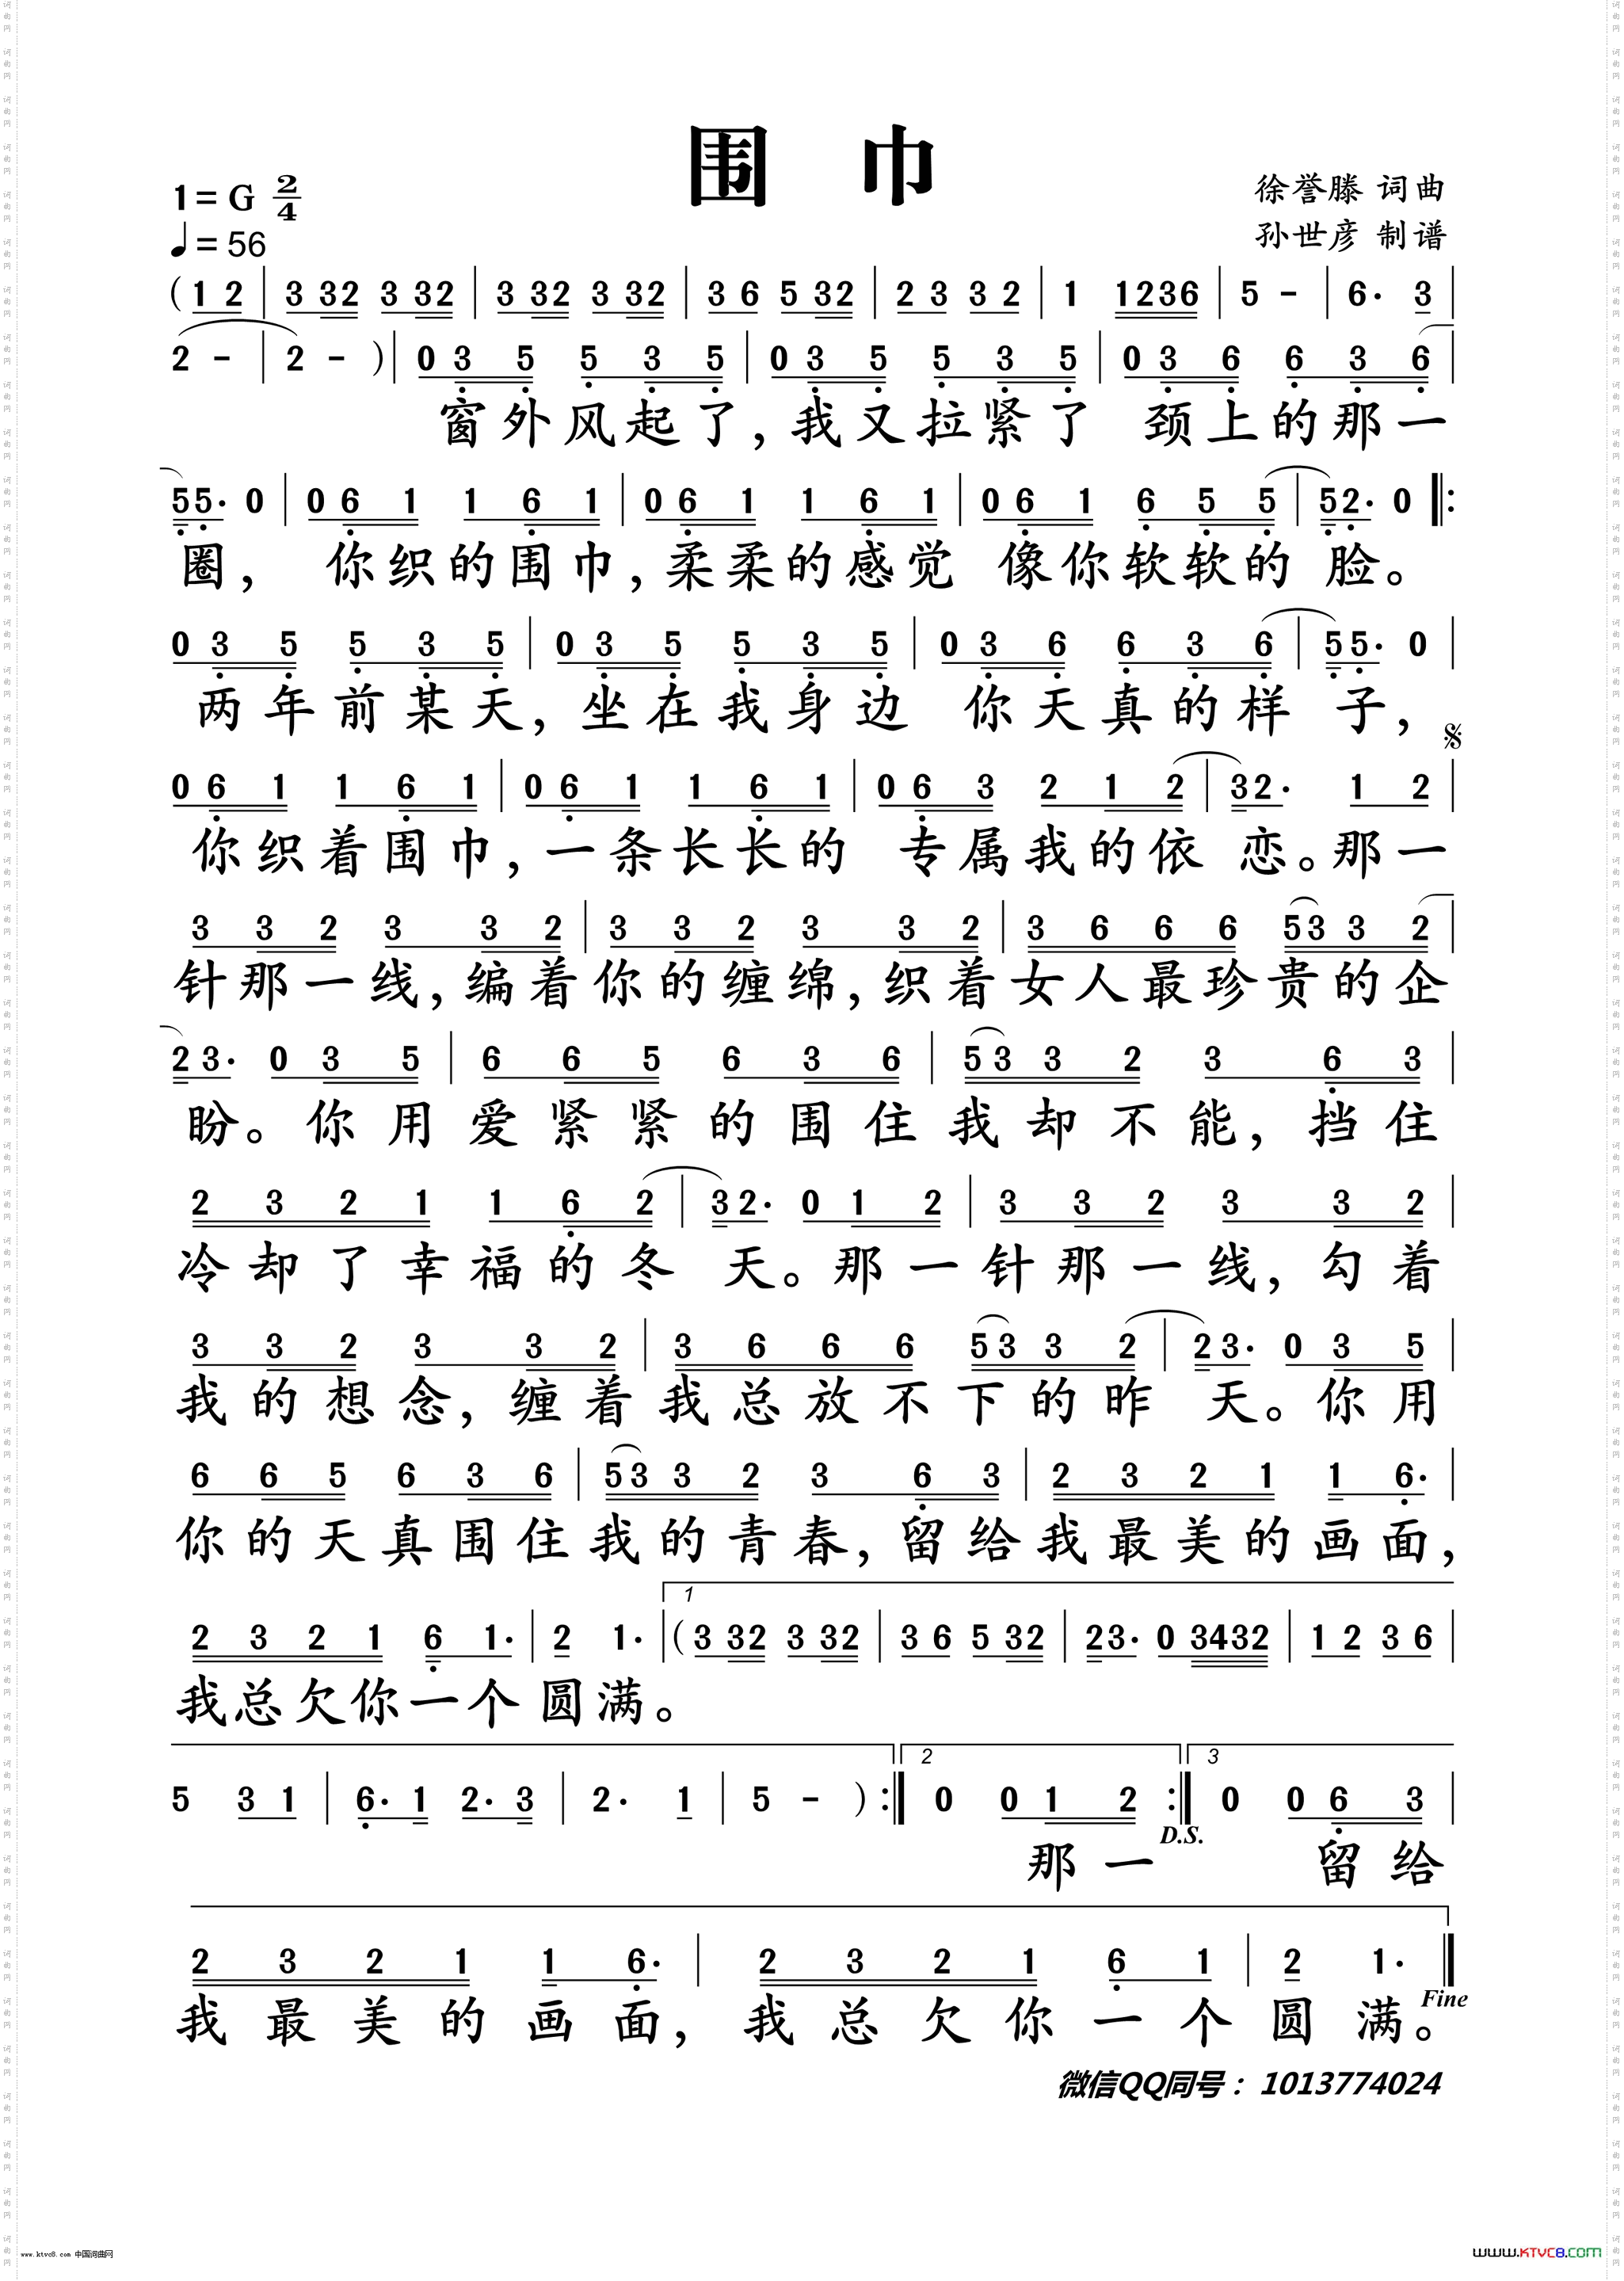 围 巾
1= G 2/4
♩= 56
徐誉滕 词曲
孙世彦 制谱
( 1 2 | 3 32 3 32 | 3 32 3 32 | 3 6 5 32 | 2 3 3 2 | 1 1236 | 5 - | 6. 3 |
2 - | 2 - ) | 0 3 5 5 3 5 | 0 3 5 5 3 5 | 0 3 6 6 3 6 |
窗外风起了,我又拉紧了 颈上的那一
55. 0 | 0 6 1 1 6 1 | 0 6 1 1 6 1 | 0 6 1 6 5 5 | 52. 0 |:
圈, 你织的围巾,柔柔的感觉 像你软软的 脸。
0 3 5 5 3 5 | 0 3 5 5 3 5 | 0 3 6 6 3 6 | 55. 0 |
两年前某天,坐在我身边 你天真的样 子,
𝄋
0 6 1 1 6 1 | 0 6 1 1 6 1 | 0 6 3 2 1 2 | 32. 1 2 |
你织着围巾,一条长长的 专属我的依 恋。那一
3 3 2 3 3 2 | 3 3 2 3 3 2 | 3 6 6 6 53 3 2 |
针那一线,编着你的缠绵,织着女人最珍贵的企
2 3. 0 3 5 | 6 6 5 6 3 6 | 5 3 3 2 3 6 3 |
盼。你用爱紧紧的围住我却不能,挡住
2 3 2 1 1 6 2 | 3 2. 0 1 2 | 3 3 2 3 3 2 |
冷却了幸福的冬 天。那一针那一线,勾着
3 3 2 3 3 2 | 3 6 6 6 53 3 2 | 2 3. 0 3 5 |
我的想念,缠着我总放不下的昨 天。你用
6 6 5 6 3 6 | 53 3 2 3 6 3 | 2 3 2 1 1 6. |
你的天真围住我的青春,留给我最美的画面,
1
2 3 2 1 6 1. | 2 1. | ( 3 32 3 32 | 3 6 5 32 | 23. 0 3432 | 1 2 3 6 |
我总欠你一个圆满。
2 3
5 3 1 | 6. 1 2. 3 | 2. 1 | 5 - ) :| 0 0 1 2 :| 0 0 6 3 |
D.S.
那一 留给
2 3 2 1 1 6. | 2 3 2 1 6 1 | 2 1. |
Fine
我最美的画面,我总欠你一个圆满。
微信QQ同号： 1013774024
www.ktvc8.com 中国词曲网
www.KTVC8.com